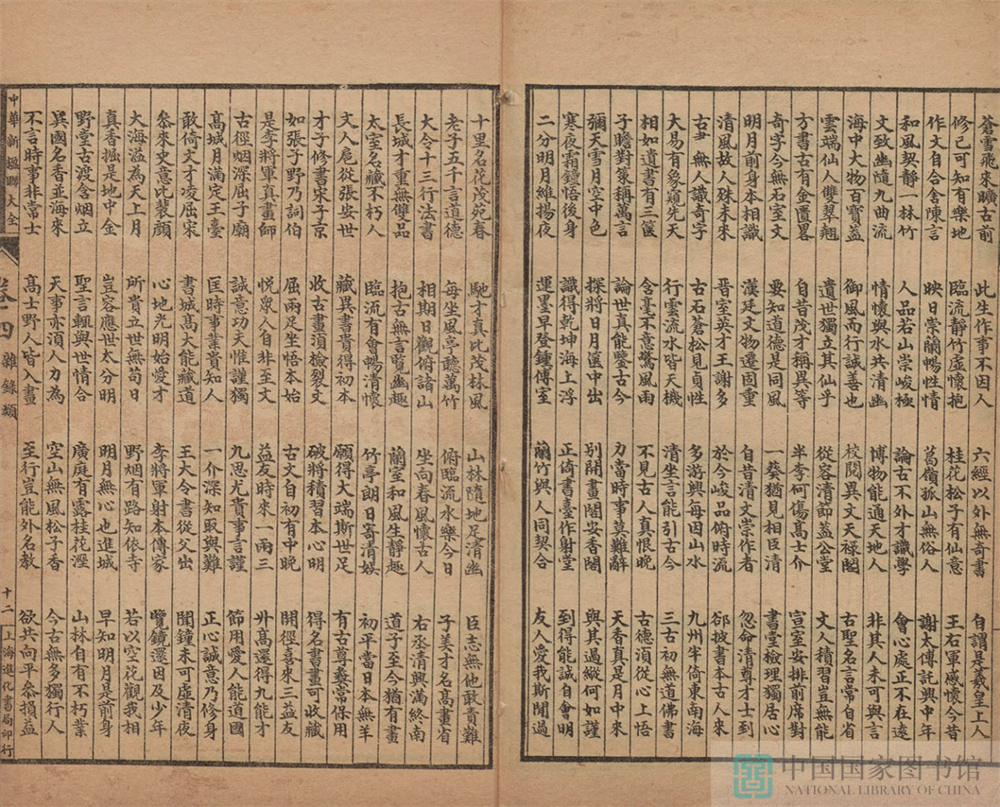 蒼雪飛來曠古前 此生作事不因人 六經以外無奇書 自謂是羲皇上人
修己可知有樂地 臨流靜竹虛懷抱 桂花松子有仙意 王右軍感懷今昔
作文自合舍陳言 映日崇蘭暢性情 葛嶺孤山無俗人 謝太傅託興中年
和風契靜一林竹 人品若山崇峻極 論古不外才識學 會心處正不在遠
文致幽隨九曲流 情懷與水共清幽 博物能通天地人 非其人未可與言
海中大物百寶益 御風而行誠善也 校閱異文天祿閣 古聖名言當自省
雲端仙人雙翠翹 遺世獨立其仙乎 從容清節蓋公堂 文人積習豈無能
方書古有金匱畧 自昔茂才稱異等 半李何傷高士介 宣室安排前席對
奇字今無石室文 要知道德是同風 一葵猶見相臣清 書堂檢理獨居心
明月前身本相識 漢廷文物還固重 自昔清文崇作者 忽命清尊才士到
清風故人殊未來 晉室英才王謝多 於今峻品俯時流 卻披書本古人來
右尹無人識奇字 古石蒼松見貞性 多游興每因山水 九州半倚東南海
大易有象窺先天 行雲流水皆天機 清坐言能引古今 三古初無道佛書
相如遺書有三篋 令毫不意驚風雨 不見古人真恨晚 古德須從心上悟
子瞻對策稱萬言 論世真能鑒古今 力當時事莫難辭 天香真是月中來
彌天雪月空中色 探將日月匱中出 別開畫閣安香閣 與其過縱何如謹
寒夜霜鐘悟後身 識得乾坤海上浮 正倚書臺作射堂 到得能誠自會明
二分明月維揚夜 運墨早登鍾傅室 蘭竹與人同契合 友人愛我斯聞過
十里名花茂苑春 馳才真比茂林風 山林隨地足清幽 臣志無他敢責難
老子五千言道德 每坐風亭聽萬竹 俯臨流水樂今日 子美才名高畫省
大令十三行法書 相期日觀俯諸山 坐向春風懷古人 右丞清興滿終南
長城才重無雙品 抱古無言覽幽趣 蘭室和風生靜趣 道子至今猶有畫
太室名藏不朽人 臨流有會暢清懷 竹亭朗日寄清娛 初平當日本無羊
文人扈從張安世 藏異書貴得初本 願得大端斯世足 有古尊彝常保用
才子修書宋子京 收古畫須檢裂文 破將積習本心明 得名書畫可收藏
如張子野乃詞伯 屈兩足坐悟本始 古文自初有中晚 開徑喜來三益友
是李將軍真畫師 悦衆人自非至文 益友時來一兩三 外高還得九能才
古徑烟深屈子廟 誠意功夫惟謹獨 九思尤貴事言謹 節用愛人能道國
高城月滿定王臺 匡時事業貴知人 一介深知取與難 正心誠意乃修身
敢倚文才凌屈宋 書城高大能藏道 王大令書從父出 聞鐘未可虛清夜
叅來史意比裴顏 心地光明始愛才 李將軍射本傳家 覽鏡還因及少年
大海溢為天上月 所貴立世無苟日 野烟有路知依寺 若以空花觀我相
真香掘是地中金 豈容應世太分明 明月無心也進城 早知明月是前身
野堂古渡含烟立 聖言輒與世情合 廣庭有露桂花溼 山林自有不朽業
異國名香並海來 天事亦須人力為 空山無風松子香 今古無多獨行人
不言時事非常士 高士野人皆入畫 至行豈能外名教 欲共向平叅損益
中華新楹聯大全 卷十四 雜錄類 十二 上海進化書局印行
中国国家图书馆
NATIONAL LIBRARY OF CHINA